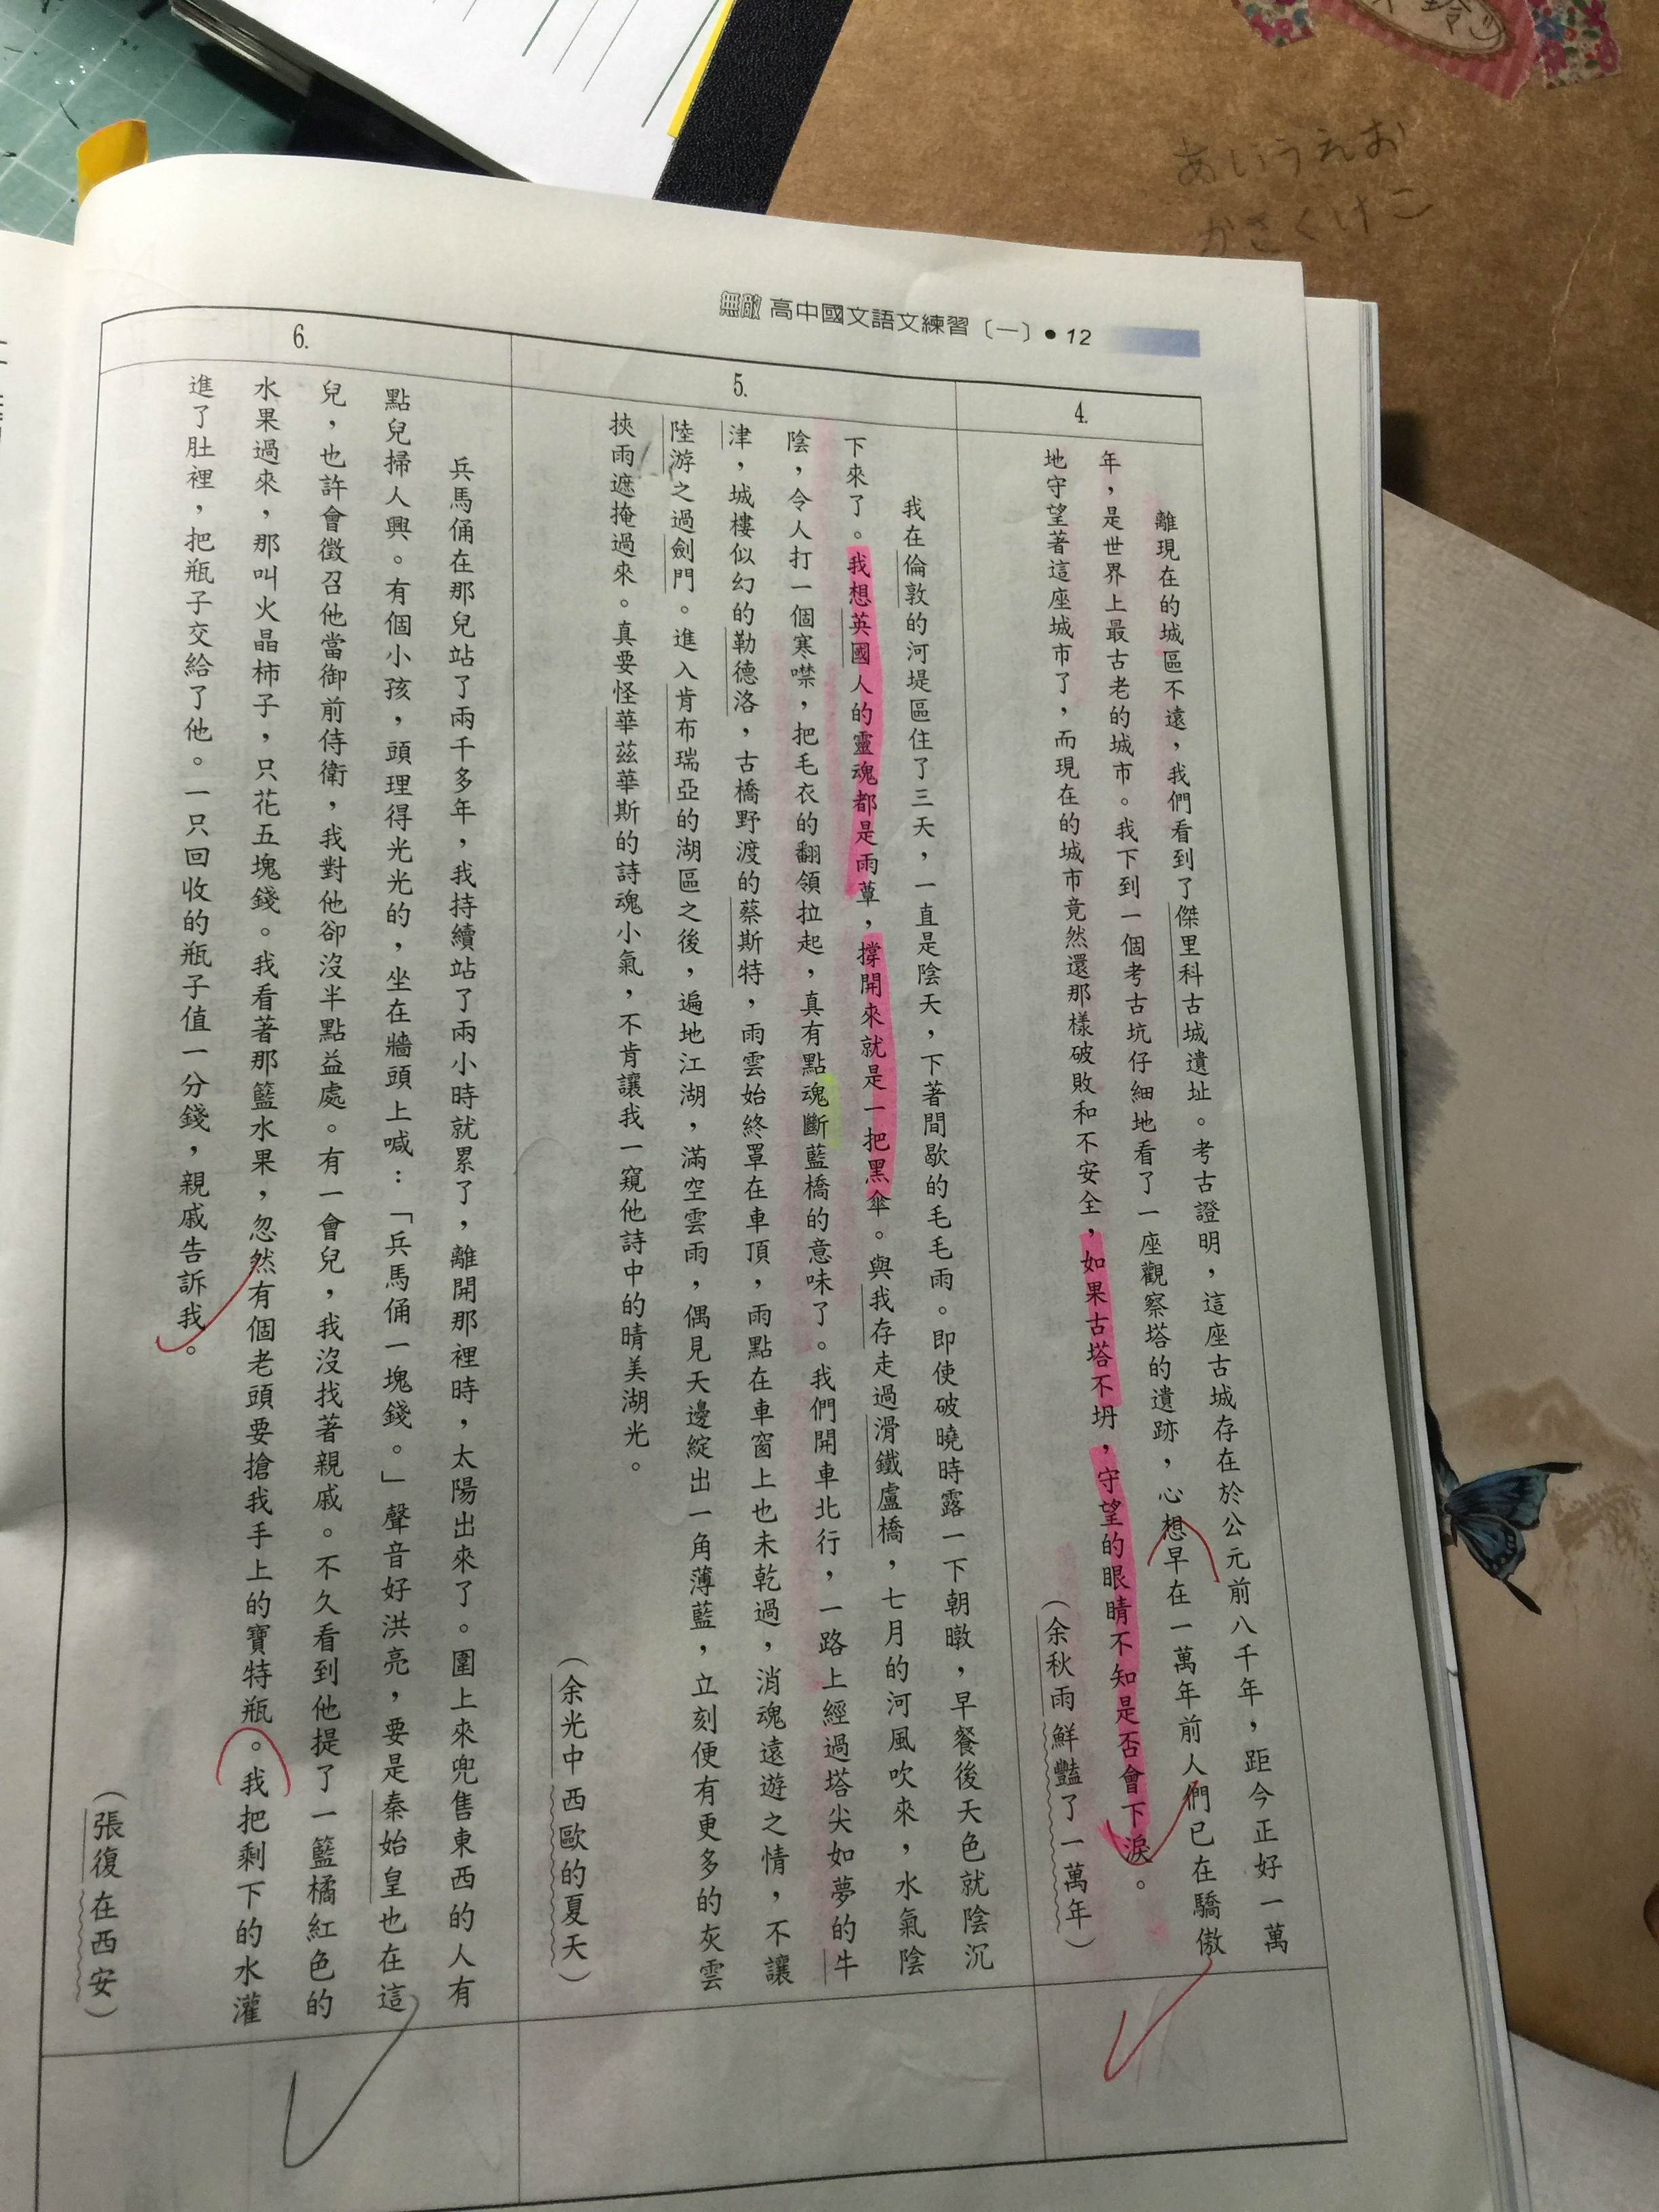 無敵 高中國文語文練習〔一〕●12
4.
離現在的城區不遠，我們看到了傑里科古城遺址。考古證明，這座古城存在於公元前八千年，距今正好一萬
年，是世界上最古老的城市。我下到一個考古坑仔細地看了一座觀察塔的遺跡，心想早在一萬年前人們已在驕傲
地守望著這座城市了，而現在的城市竟然還那樣破敗和不安全，如果古塔不坍，守望的眼睛不知是否會下淚。
（余秋雨鮮豔了一萬年）
5.
我在倫敦的河堤區住了三天，一直是陰天，下著間歇的毛毛雨。即使破曉時露一下朝暾，早餐後天色就陰沉
下來了。我想英國人的靈魂都是雨蕈，撐開來就是一把黑傘。與我存走過滑鐵盧橋，七月的河風吹來，水氣陰
陰，令人打一個寒噤，把毛衣的翻領拉起，真有點魂斷藍橋的意味了。我們開車北行，一路上經過塔尖如夢的牛
津，城樓似幻的勒德洛，古橋野渡的蔡斯特，雨雲始終罩在車頂，雨點在車窗上也未乾過，消魂遠遊之情，不讓
陸游之過劍門。進入肯布瑞亞的湖區之後，遍地江湖，滿空雲雨，偶見天邊綻出一角薄藍，立刻便有更多的灰雲
挾雨遮掩過來。真要怪華茲華斯的詩魂小氣，不肯讓我一窺他詩中的晴美湖光。
（余光中西歐的夏天）
6.
兵馬俑在那兒站了兩千多年，我持續站了兩小時就累了，離開那裡時，太陽出來了。圍上來兜售東西的人有
點兒掃人興。有個小孩，頭理得光光的，坐在牆頭上喊：「兵馬俑一塊錢。」聲音好洪亮，要是秦始皇也在這
兒，也許會徵召他當御前侍衛，我對他卻沒半點益處。有一會兒，我沒找著親戚。不久看到他提了一籃橘紅色的
水果過來，那叫火晶柿子，只花五塊錢。我看著那籃水果，忽然有個老頭要搶我手上的寶特瓶。我把剩下的水灌
進了肚裡，把瓶子交給了他。一只回收的瓶子值一分錢，親戚告訴我。
（張復在西安）
あいうえお
かさくけこ